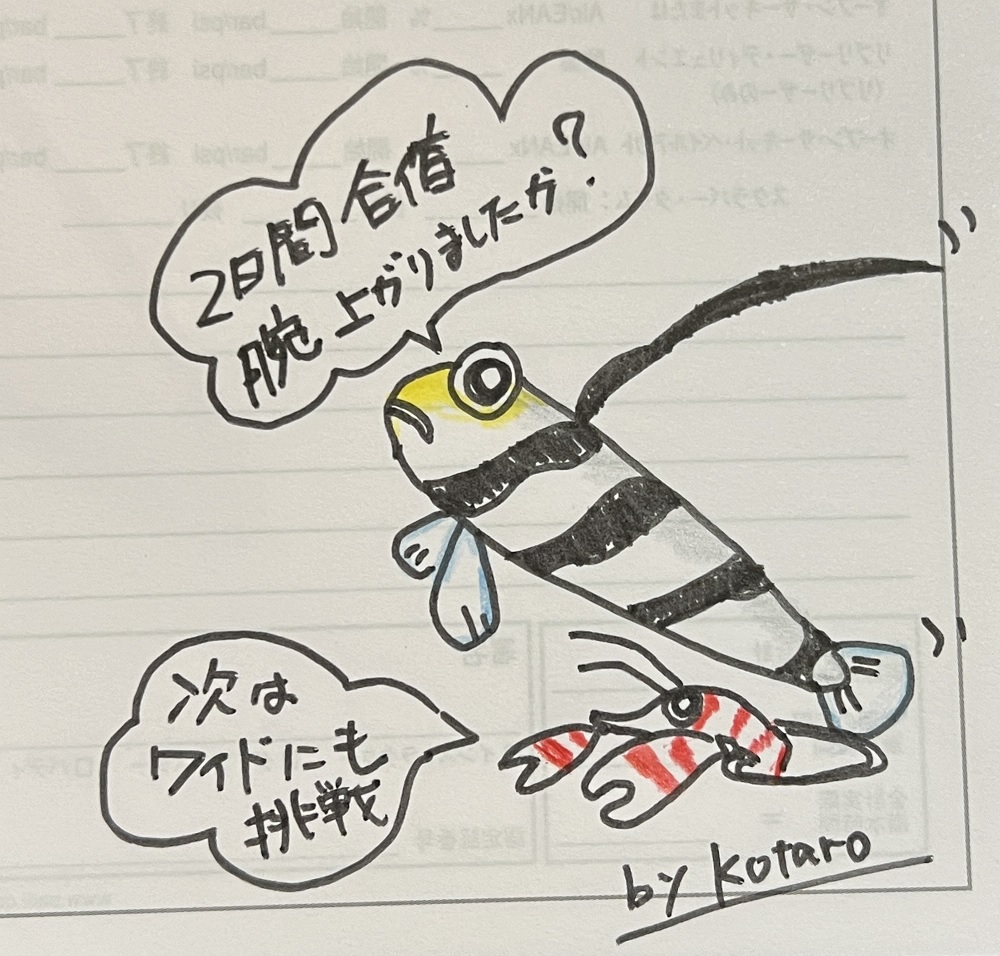 2日間合宿
腕上がりましたか?
次は
ワイドにも
挑戦
by kotaro